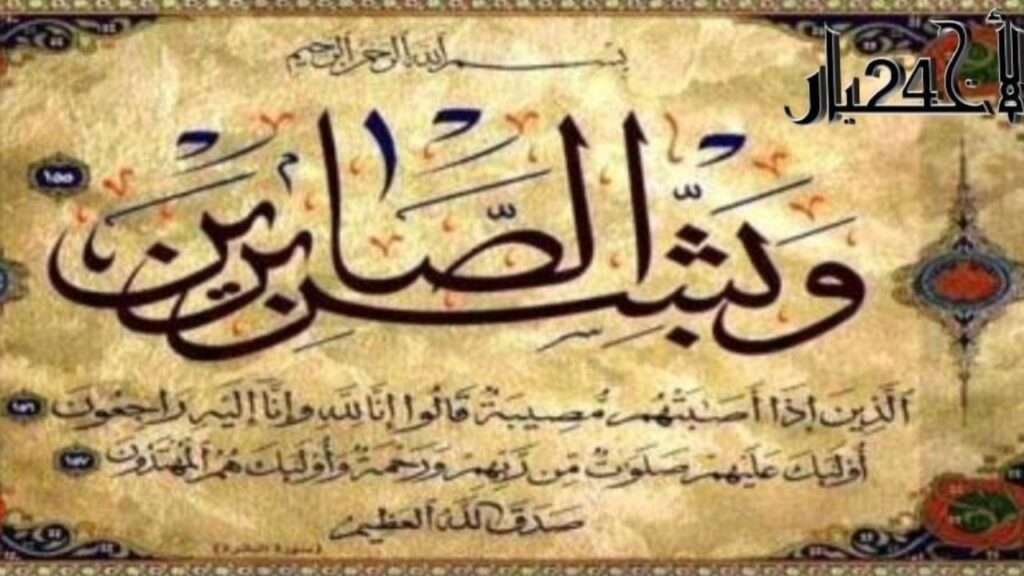 الأخيار 24
بسم الله الرحمن الرحيم
وَبَشِّرِ الصَّابِرِينَ ١٥٥
الَّذِينَ إِذَا أَصَابَتْهُم مُّصِيبَةٌ قَالُوا إِنَّا لِلَّهِ وَإِنَّا إِلَيْهِ رَاجِعُونَ ١٥٦
أُولَئِكَ عَلَيْهِمْ صَلَوَاتٌ مِّن رَّبِّهِمْ وَرَحْمَةٌ وَأُولَئِكَ هُمُ الْمُهْتَدُونَ ١٥٧
صدق الله العظيم
(سورة البقرة)